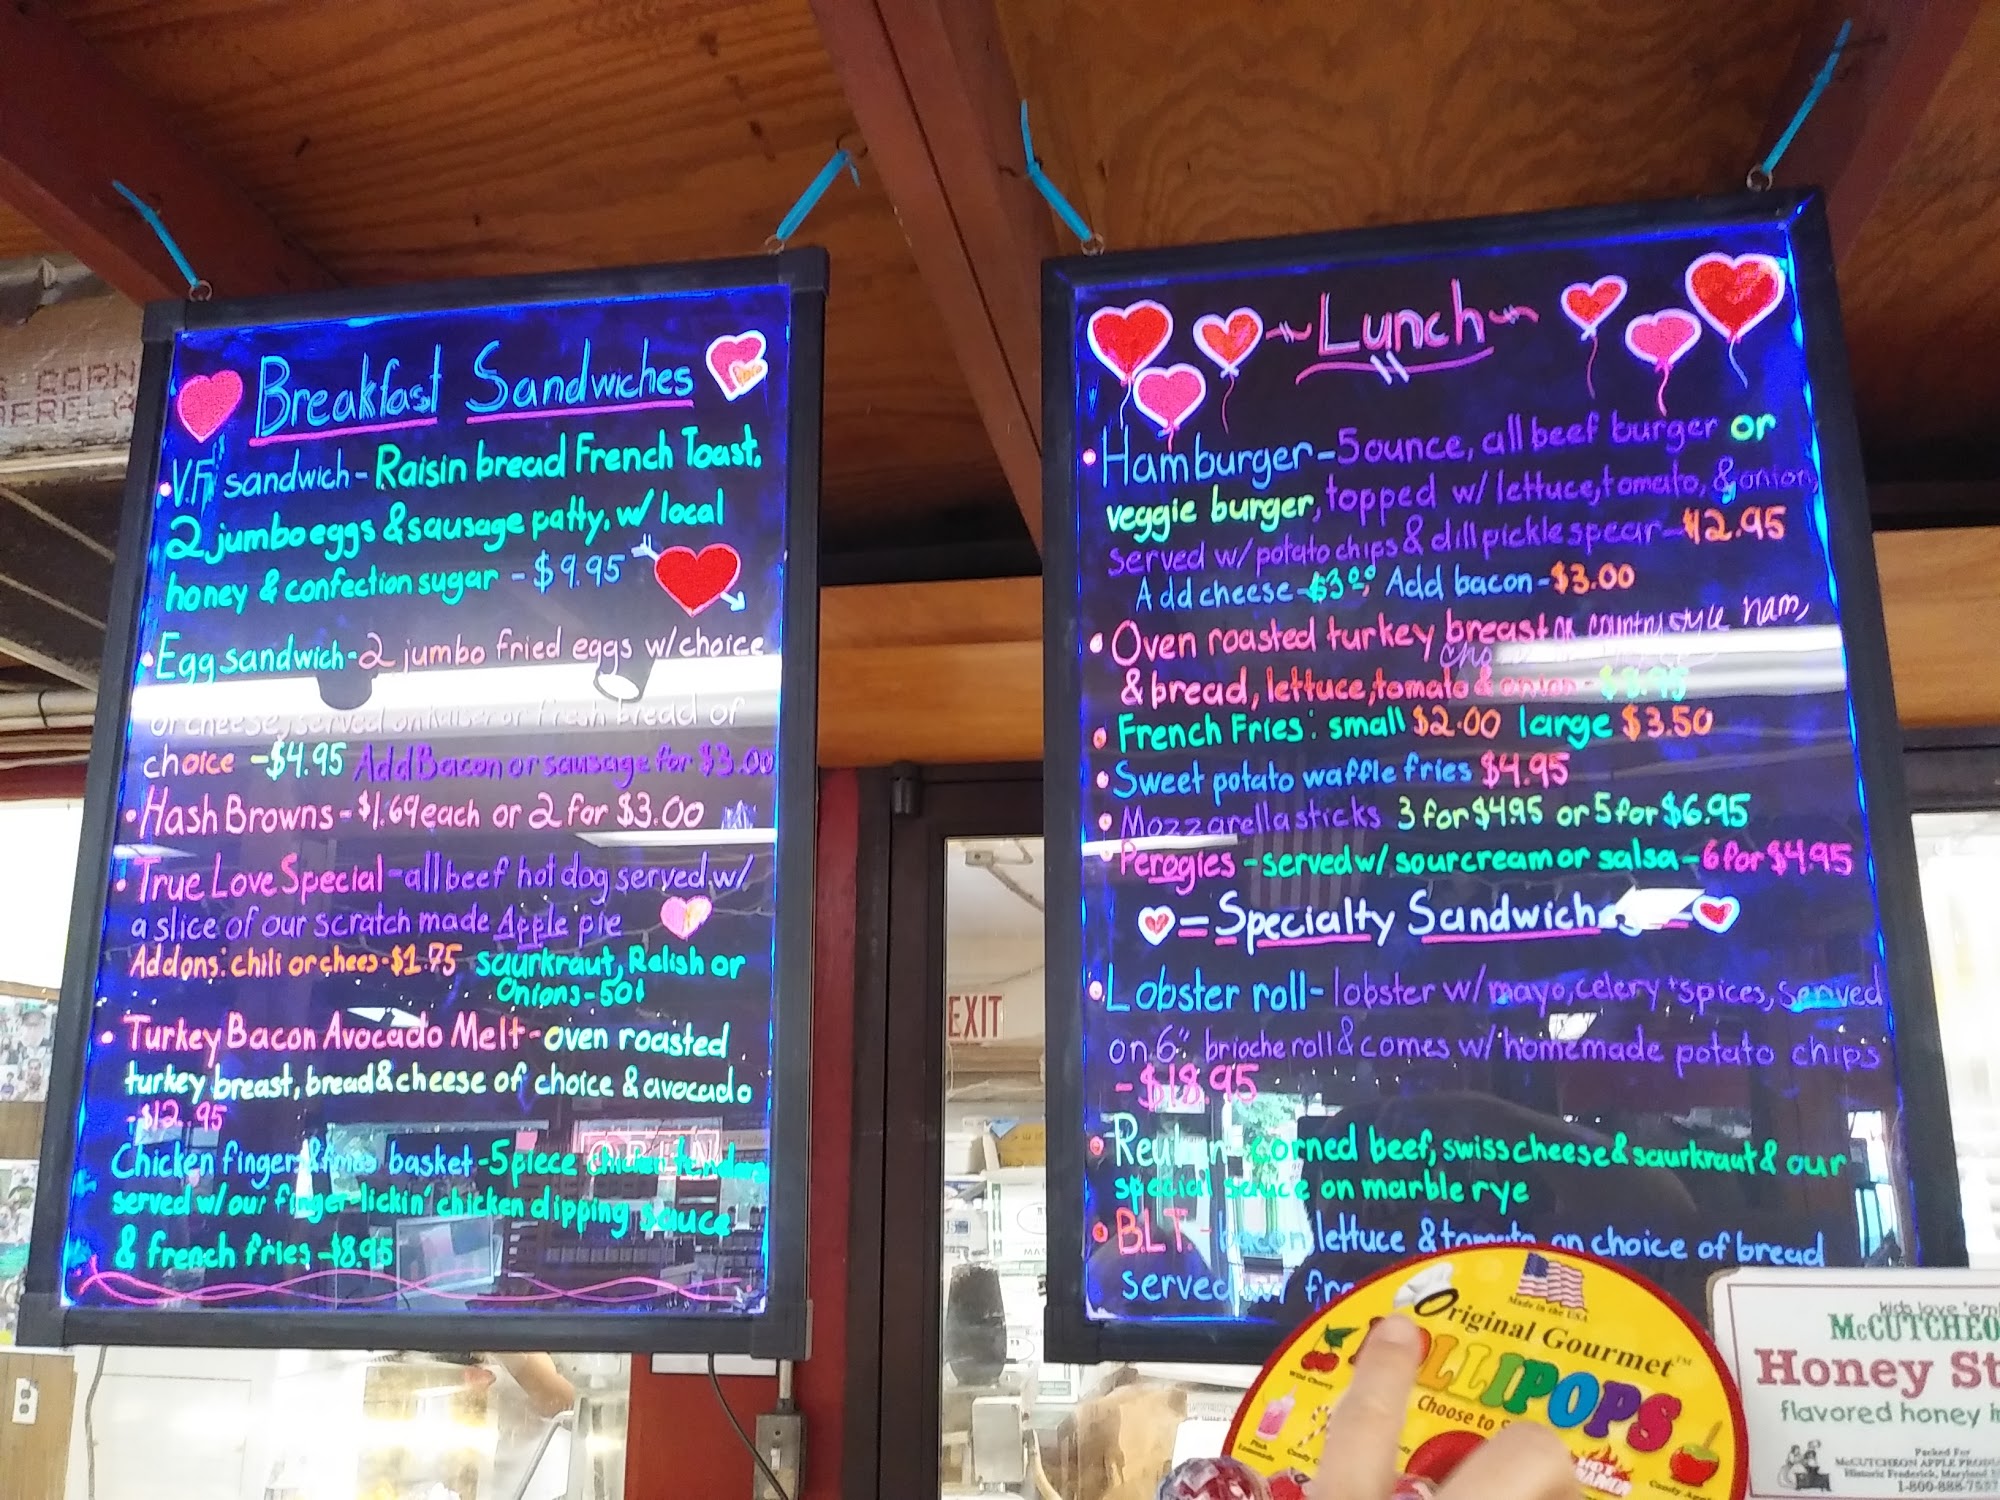 Breakfast Sandwiches
V.F. sandwich - Raisin bread French Toast,
2 jumbo eggs & sausage patty, w/ local
honey & confection sugar - $9.95
Egg sandwich - 2 jumbo fried eggs w/choice
or cheese, served on Kaiser or fresh bread of
choice - $4.95 Add Bacon or sausage for $3.00
Hash Browns - $1.69 each or 2 for $3.00
True Love Special - all beef hot dog served w/
a slice of our scratch made Apple pie
Add ons: chili or chees - $1.75 saurkraut, Relish or
Onions - 50¢
Turkey Bacon Avocado Melt - oven roasted
turkey breast, bread & cheese of choice & avocado
- $12.95
Chicken fingers & fries basket - 5 piece chicken tenders
served w/ our finger-lickin' chicken dipping sauce
& french fries - $8.95
Lunch
Hamburger - 5 ounce, all beef burger or
veggie burger, topped w/ lettuce, tomato, & onion,
served w/ potato chips & dill pickle spear - $12.95
Add cheese - $3.00, Add bacon - $3.00
Oven roasted turkey breast or country style ham,
& bread, lettuce, tomato & onion - $8.95
French Fries: small $2.00 large $3.50
Sweet potato waffle fries $4.95
Mozzarella sticks 3 for $4.95 or 5 for $6.95
Perogies - served w/ sourcream or salsa - 6 for $4.95
= Specialty Sandwich =
Lobster roll - lobster w/mayo, celery + spices, served
on 6" brioche roll & comes w/ homemade potato chips
- $18.95
Reuben - corned beef, swiss cheese & saurkraut & our
special sauce on marble rye
B.L.T. - bacon, lettuce & tomato on choice of bread
served w/ fr
EXIT
Made in the USA
Original Gourmet™
LOLLIPOPS
Choose to
Wild Cherry
Pink
Lemonade
Candy Apple
kids love 'em
McCUTCHEO
Honey St
flavored honey
Packed For
McCUTCHEON APPLE PRODU
Historic Frederick, Maryland
1-800-888-7537